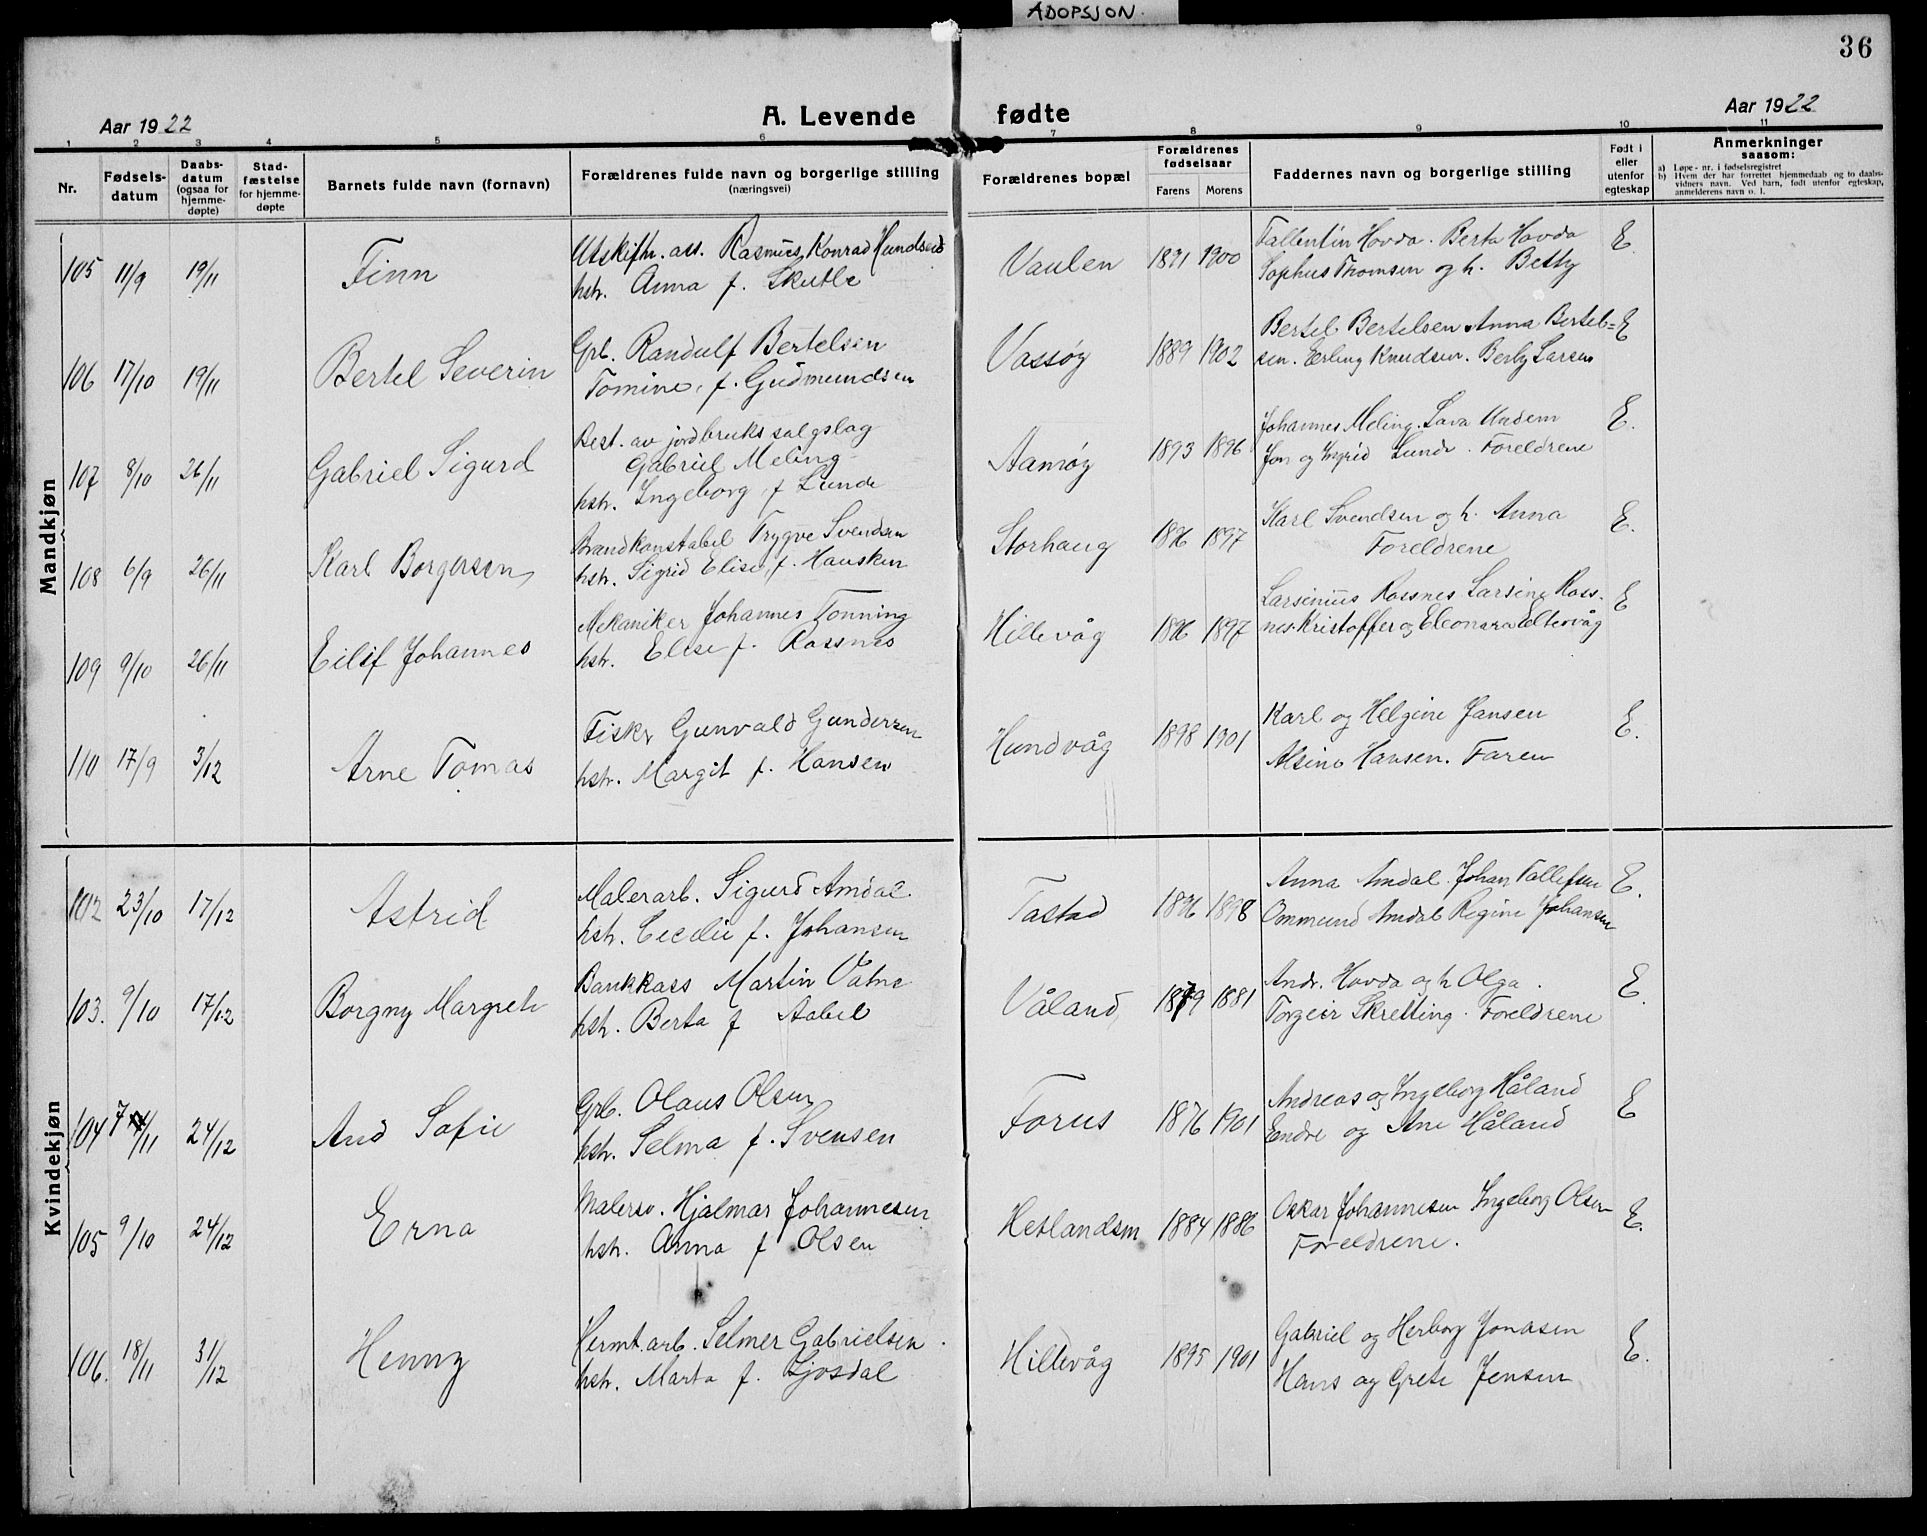 ADOPSJON.
36
Aar 1922
A. Levende fødte
Aar 1922
1 2 3 4 5 6 7 8 9 10 11
Nr.
Fødsels-
datum
Daabs-
datum
(ogsaa for
hjemme-
døpte)
Stad-
fæstelse
for hjemme-
døpte
Barnets fulde navn (fornavn)
Forældrenes fulde navn og borgerlige stilling
(næringsvei)
Forældrenes bopæl
Forældrenes
fødselsaar
Farens Morens
Faddernes navn og borgerlige stilling
Født i
eller
utenfor
egteskap
Anmerkninger
saasom:
a) Løpe-nr. i fødselsregistret
b) Hvem der har forrettet hjemmedaab og to daabs-
vidners navn. Ved barn, født utenfor egteskap,
anmelderens navn o. l.
Mandkjøn
105 11/9 19/11 Finn
Utskiftn. ass. Rasmus Konrad Hundseid
hstr. Anna f. Skutle
Vaulen 1891 1900
Fallentin Hovda. Berta Hovda
Sophus Thomsen og h. Betty
E.
106 17/10 19/11 Bertel Severin
Grb. Randulf Bertelsen
Tomine, f. Gudmundsen
Vassøy 1889 1902
Bertel Bertelsen Anna Bertel=
sen. Erling Knudsen. Berly Larsen
E
107 8/10 26/11 Gabriel Sigurd
Best. av jordbruks salgslag
Gabriel Meling
hstr. Ingeborg f Lunde
Aamøy 1893 1896
Johannes Meling. Lava Undem
Jon og Ingrid Lunde. Foreldrene
E.
108 6/9 26/11 Karl Borgersen
Brandkonstabel Trygve Svendsen
hstr. Sigrid Elise f. Hausken
Storhaug 1896 1897
Karl Svendsen og h. Anna
Foreldrene
E.
109 9/10 26/11 Eilif Johannes
Mekaniker Johannes Tonning
hstr. Elise f. Rossnes
Hillevåg 1896 1897
Larsinius Rossnes Larsine Ross-
nes Kristoffer og Eleonara Eltervåg
E
110 17/9 3/12 Arne Tomas
Fisker Gunvald Gundersen
hstr. Margit f. Hansen
Hundvåg 1898 1901
Karl og Helgine Jansen
Alsine Hansen. Faren
E.
Kvindekjøn
102 23/10 17/12 Astrid
Malerarb. Sigurd Amdal.
hstr. Cecilie f. Johansen
Tastad 1896 1898
Anna Amdal. Johan Tallefsen
Ommund Amdal Regine Johansen
E.
103. 9/10 17/12 Borgny Margrete
Bankkass Martin Vatne
hstr. Berta f Aabel
Våland 1879 1881
Andr. Hovda og h Olga.
Torgeir Skretting. Foreldrene
E.
104 7/11 24/12 And Sofie
Grb. Olaus Olsen
hstr. Selma f. Svensen
Forus 1876 1901
Andreas og Ingeborg Håland
Endre og Ane Håland
E
105 9/10 24/12 Erna
Malersv. Hjalmar Johannesen
hstr. Anna f Olsen
Hetlandsm 1884 1886
Oskar Johannesen Ingeborg Olsen
Foreldrene.
E.
106. 18/11 31/12 Henny
Hermt. arb. Selmer Gabrielsen.
hstr. Marta f. Gjosdal
Hillevåg 1895 1901
Gabriel og Herborg Jonasen
Hans og Grete Jensen
E.